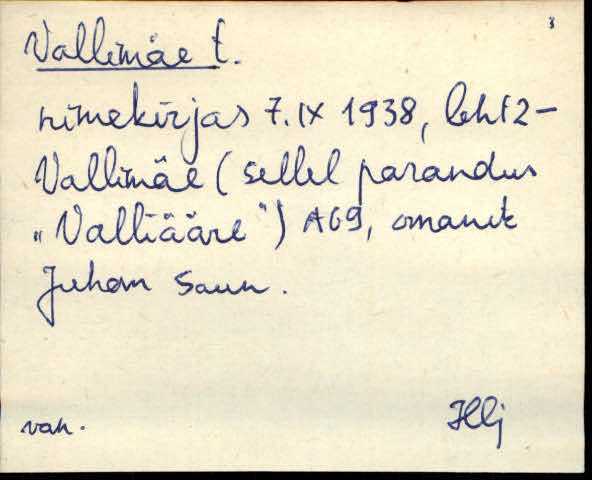 Vallimäe t.
nimekirjas 7.IX 1938, leht 2-
Vallimäe (sellel parandus
„Valliääre") A69, omanik
Juhan Saun.
vah. Hlj